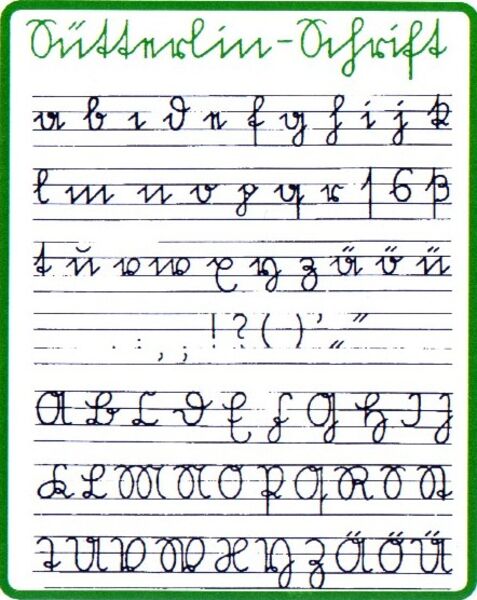 Sütterlin-Schrift
a b c d e f g h i j k
l m n o p q r ſ s ß
t u v w x y z ä ö ü
. : , ; ! ? ( ) ' „ “
A B C D E F G H I J
K L M N O P Q R S St
T U V W X Y Z Ä Ö Ü